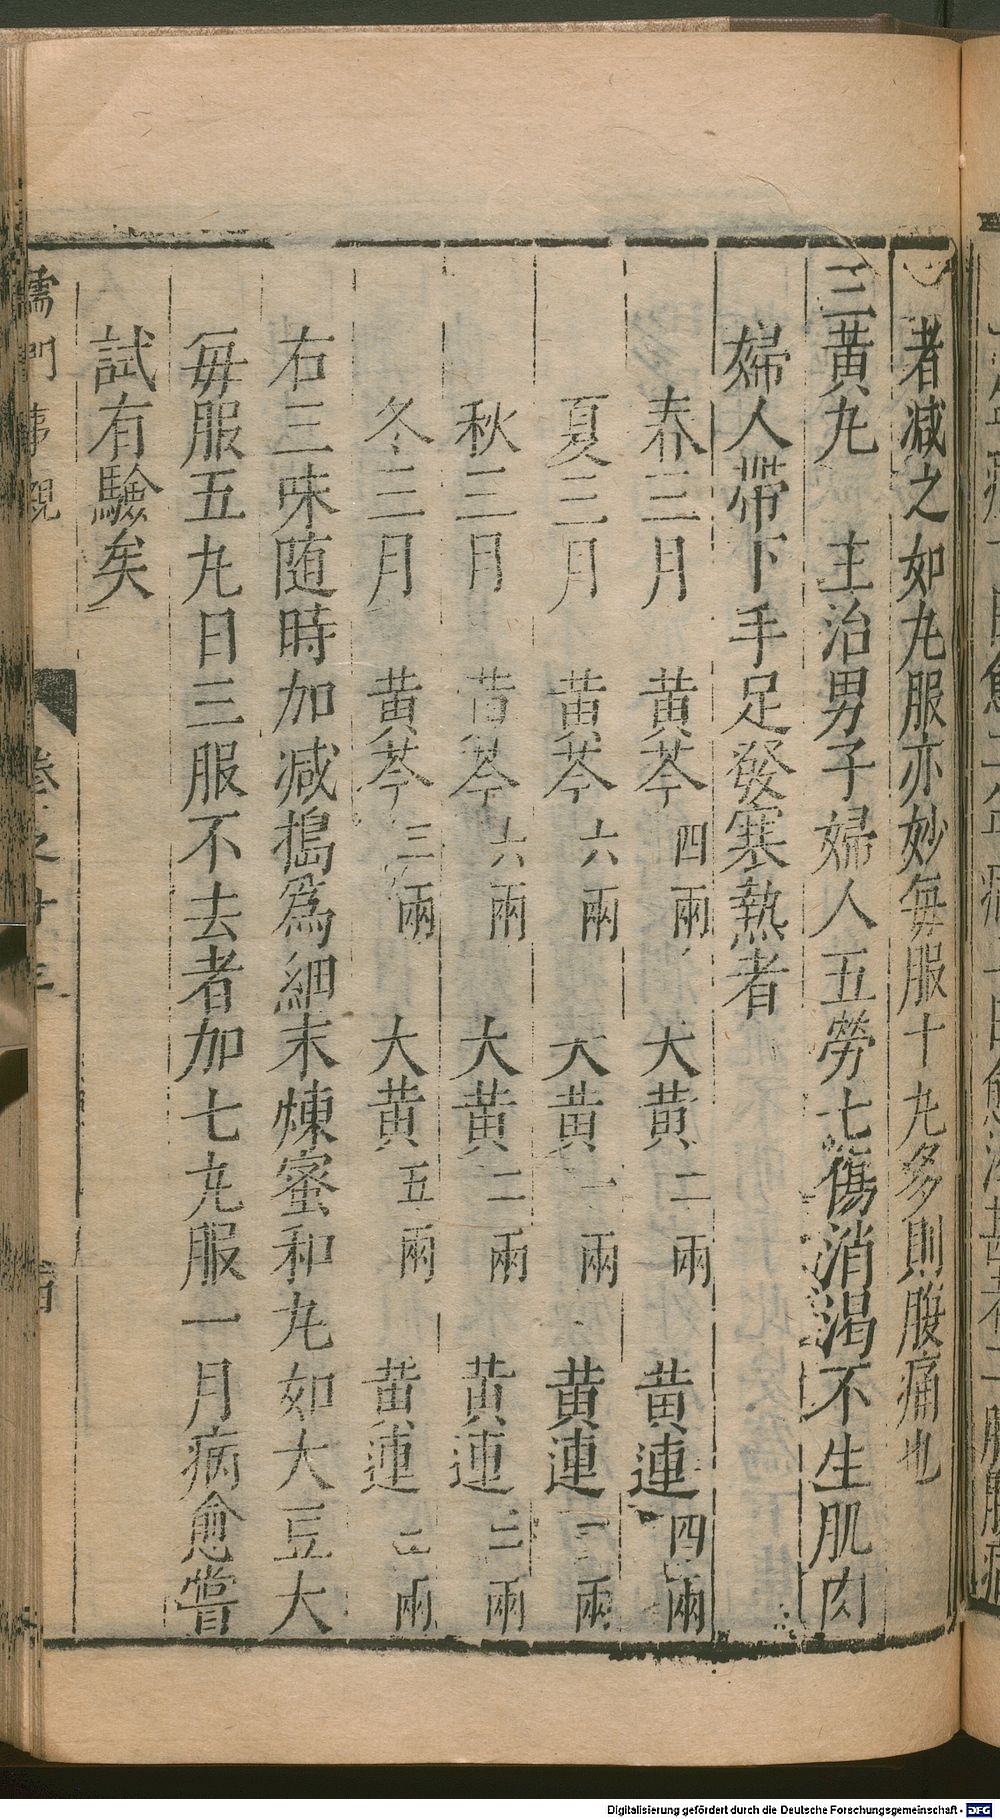 者減之如丸服亦妙每服十丸多則腹痛也
三黃丸　主治男子婦人五勞七傷消渴不生肌肉
婦人帶下手足發寒熱者
春三月　黃芩四兩　大黃二兩　黃連四兩
夏三月　黃芩六兩　大黃一兩　黃連一兩
秋三月　黃芩六兩　大黃二兩　黃連三兩
冬三月　黃芩三兩　大黃五兩　黃連二兩
右三味隨時加減搗為細末煉蜜和丸如大豆大
每服五丸日三服不去者加七丸服一月病愈嘗
試有驗矣
儒門事親
卷之十三
Digitalisierung gefördert durch die Deutsche Forschungsgemeinschaft - DFG